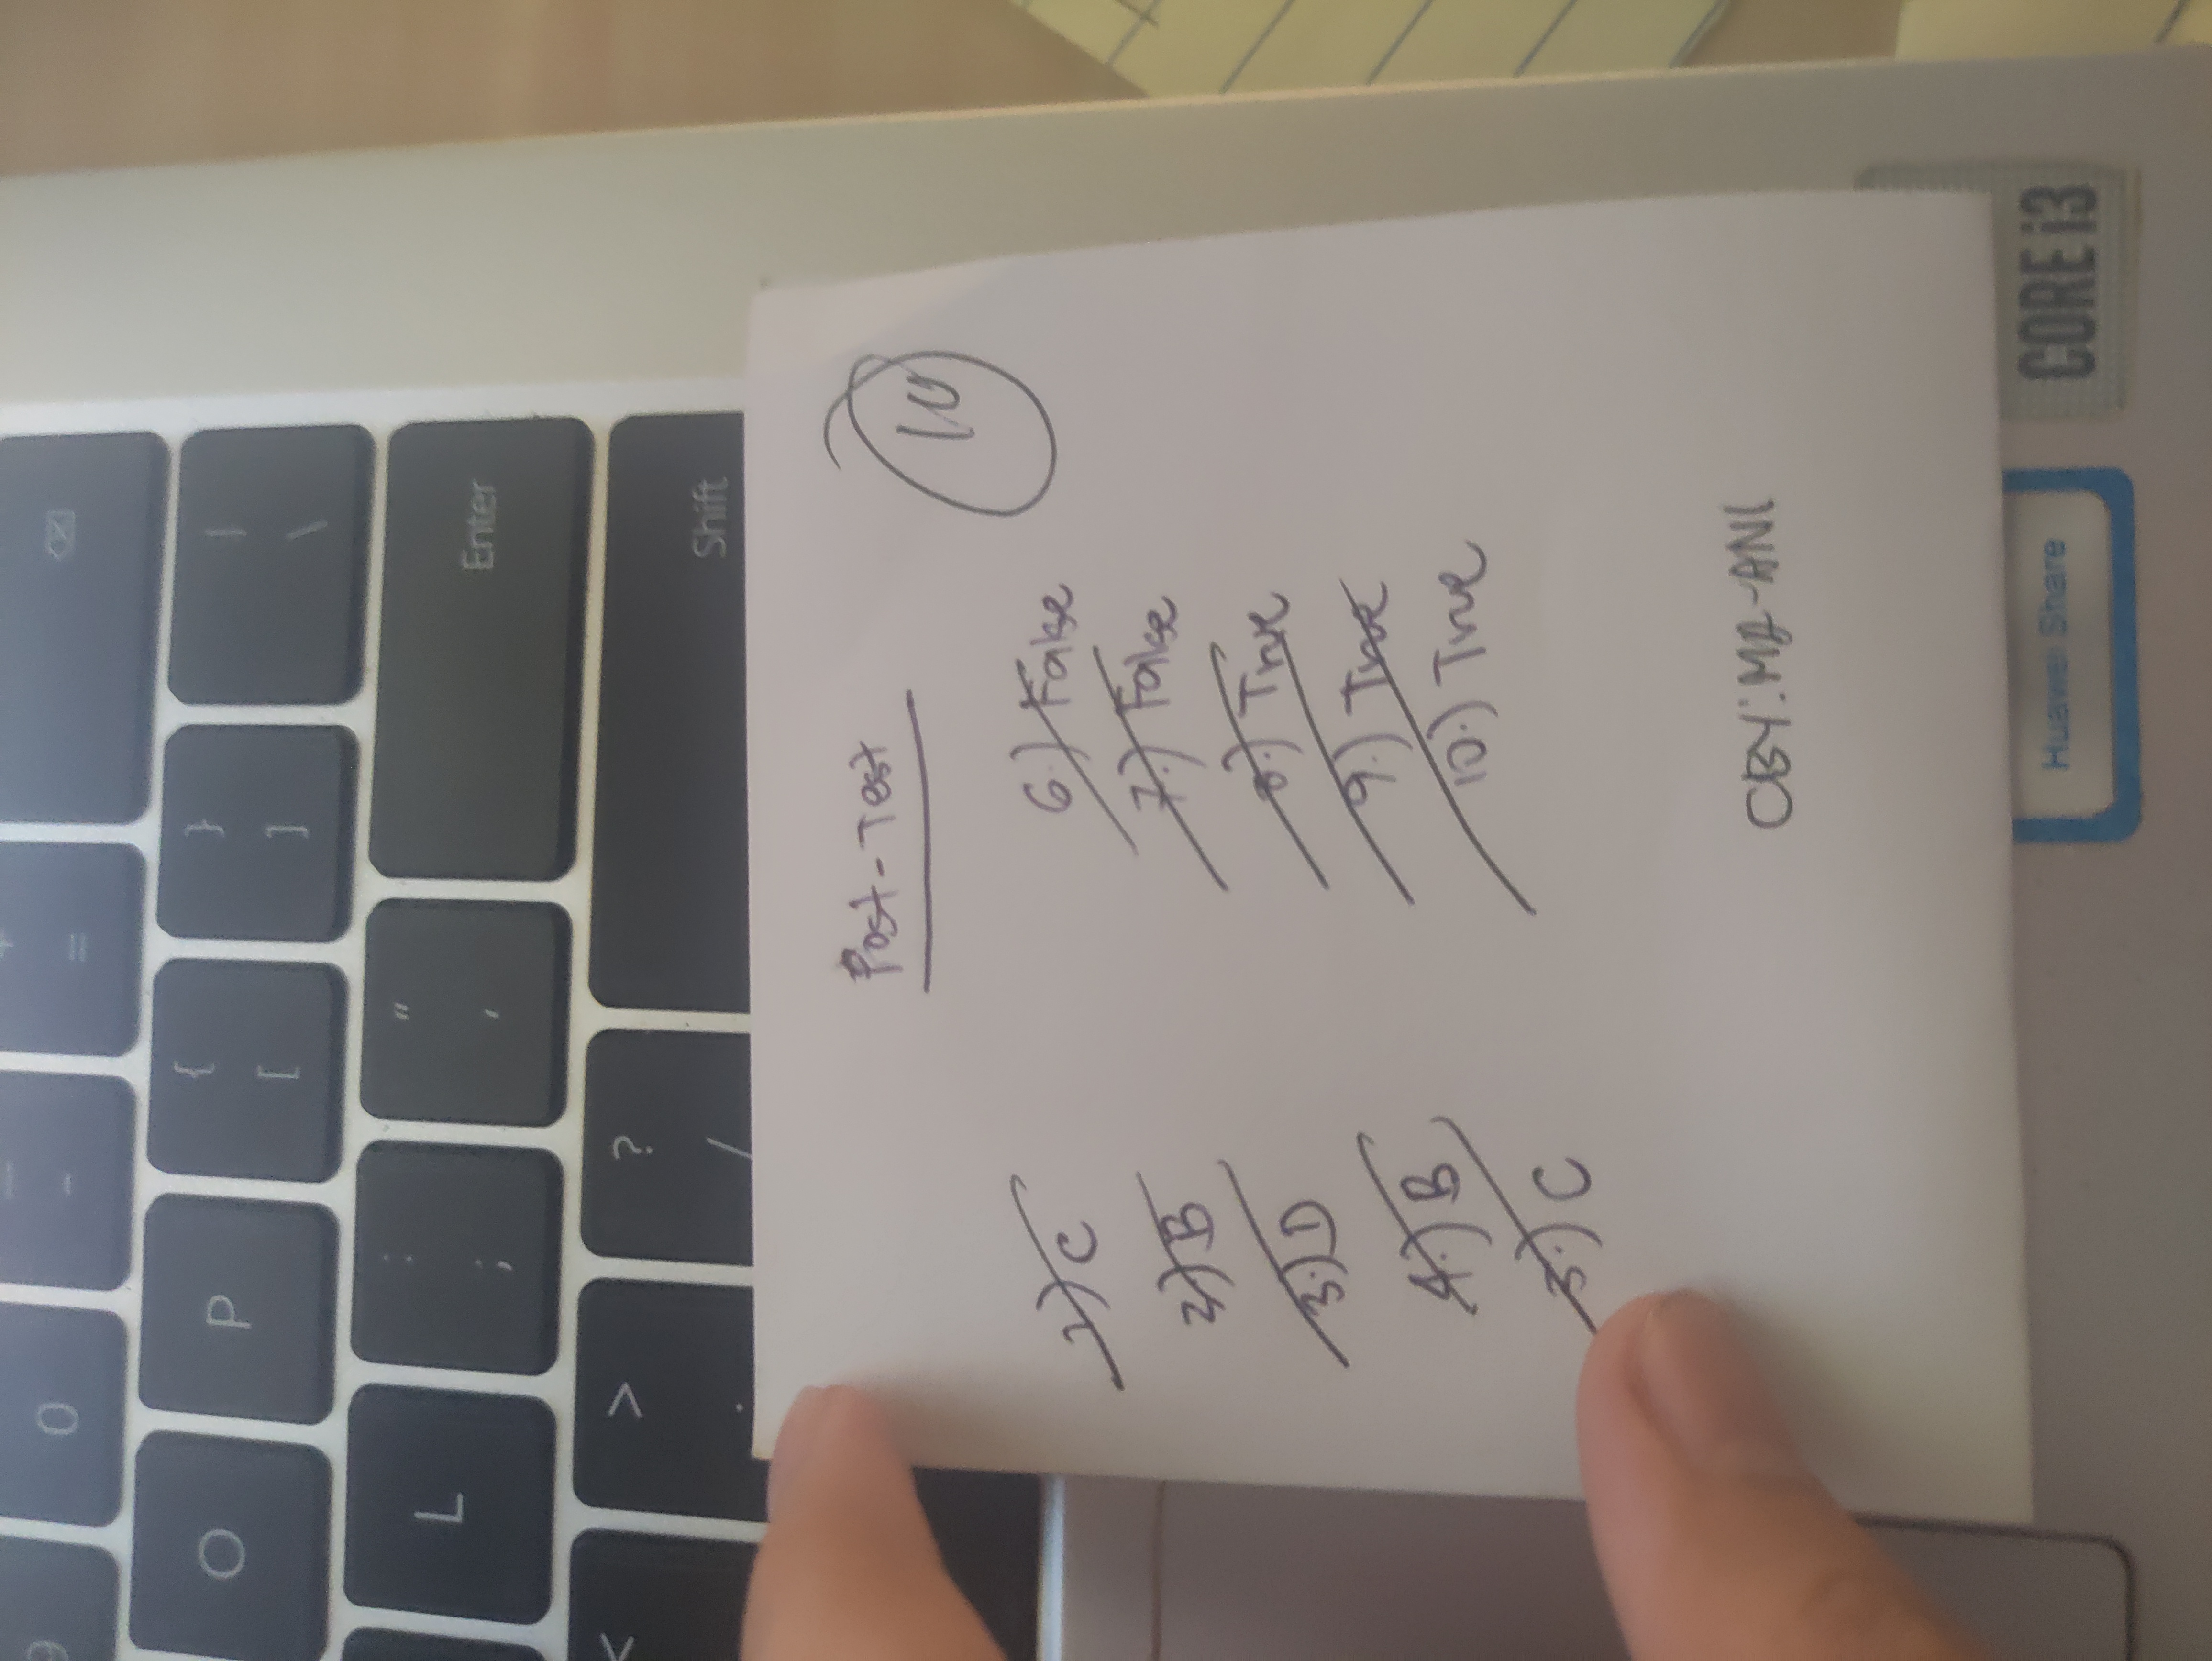 9
0
-
+
=
O
P
{
[
}
]
|
\
L
:
;
"
'
Enter
<
>
.
?
/
Shift
Post-Test
10
1.) C
2.) B
3.) D
4.) B
5.) C
6.) False
7.) False
8.) True
9.) True
10.) True
CBY:
Huawei Share
CORE i3